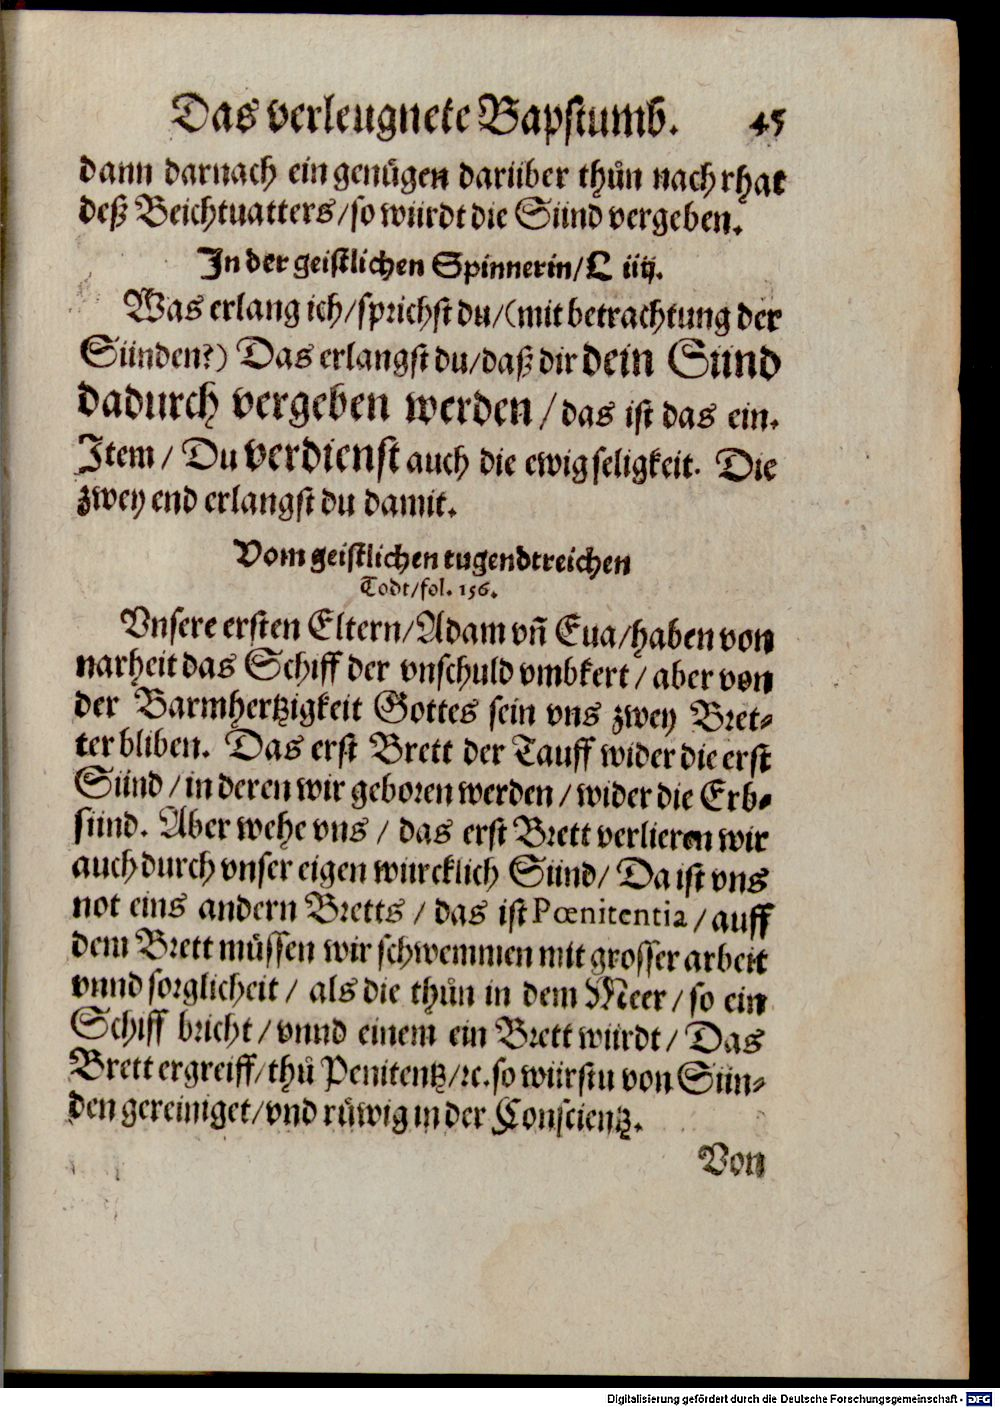 Das verleugnete Bapstumb. 45
dann darnach ein genügen darüber thůn nach rhat
deß Beichtuatters/so würdt die Sünd vergeben.
In der geistlichen Spinnerin/C iiij.
Was erlang ich/sprichst du/(mit betrachtung der
Sünden?) Das erlangst du/daß dir dein Sünd
dadurch vergeben werden/das ist das ein.
Item/ Du verdienst auch die ewig seligkeit. Die
zwey end erlangst du damit.
Vom geistlichen tugendtreichen
Todt/fol. 156.
Vnsere ersten Eltern/Adam vñ Eua/haben von
narheit das Schiff der vnschuld vmbkert/aber von
der Barmhertzigkeit Gottes sein vns zwey Bret-
ter bliben. Das erst Brett der Tauff wider die erst
Sünd/in deren wir geboren werden/wider die Erb-
sünd. Aber wehe vns/ das erst Brett verlieren wir
auch durch vnser eigen würcklich Sünd/ Da ist vns
not eins andern Bretts/ das ist Pœnitentia/auff
dem Brett müssen wir schwemmen mit grosser arbeit
vnnd sorglicheit/ als die thůn in dem Meer/so ein
Schiff bricht/vnnd einem ein Brett würdt/ Das
Brett ergreiff/thů Penitentz/ꝛc. so würstu von Sün-
den gereiniget/vnd růwig in der Conscientz.
Von
Digitalisierung gefördert durch die Deutsche Forschungsgemeinschaft - DFG